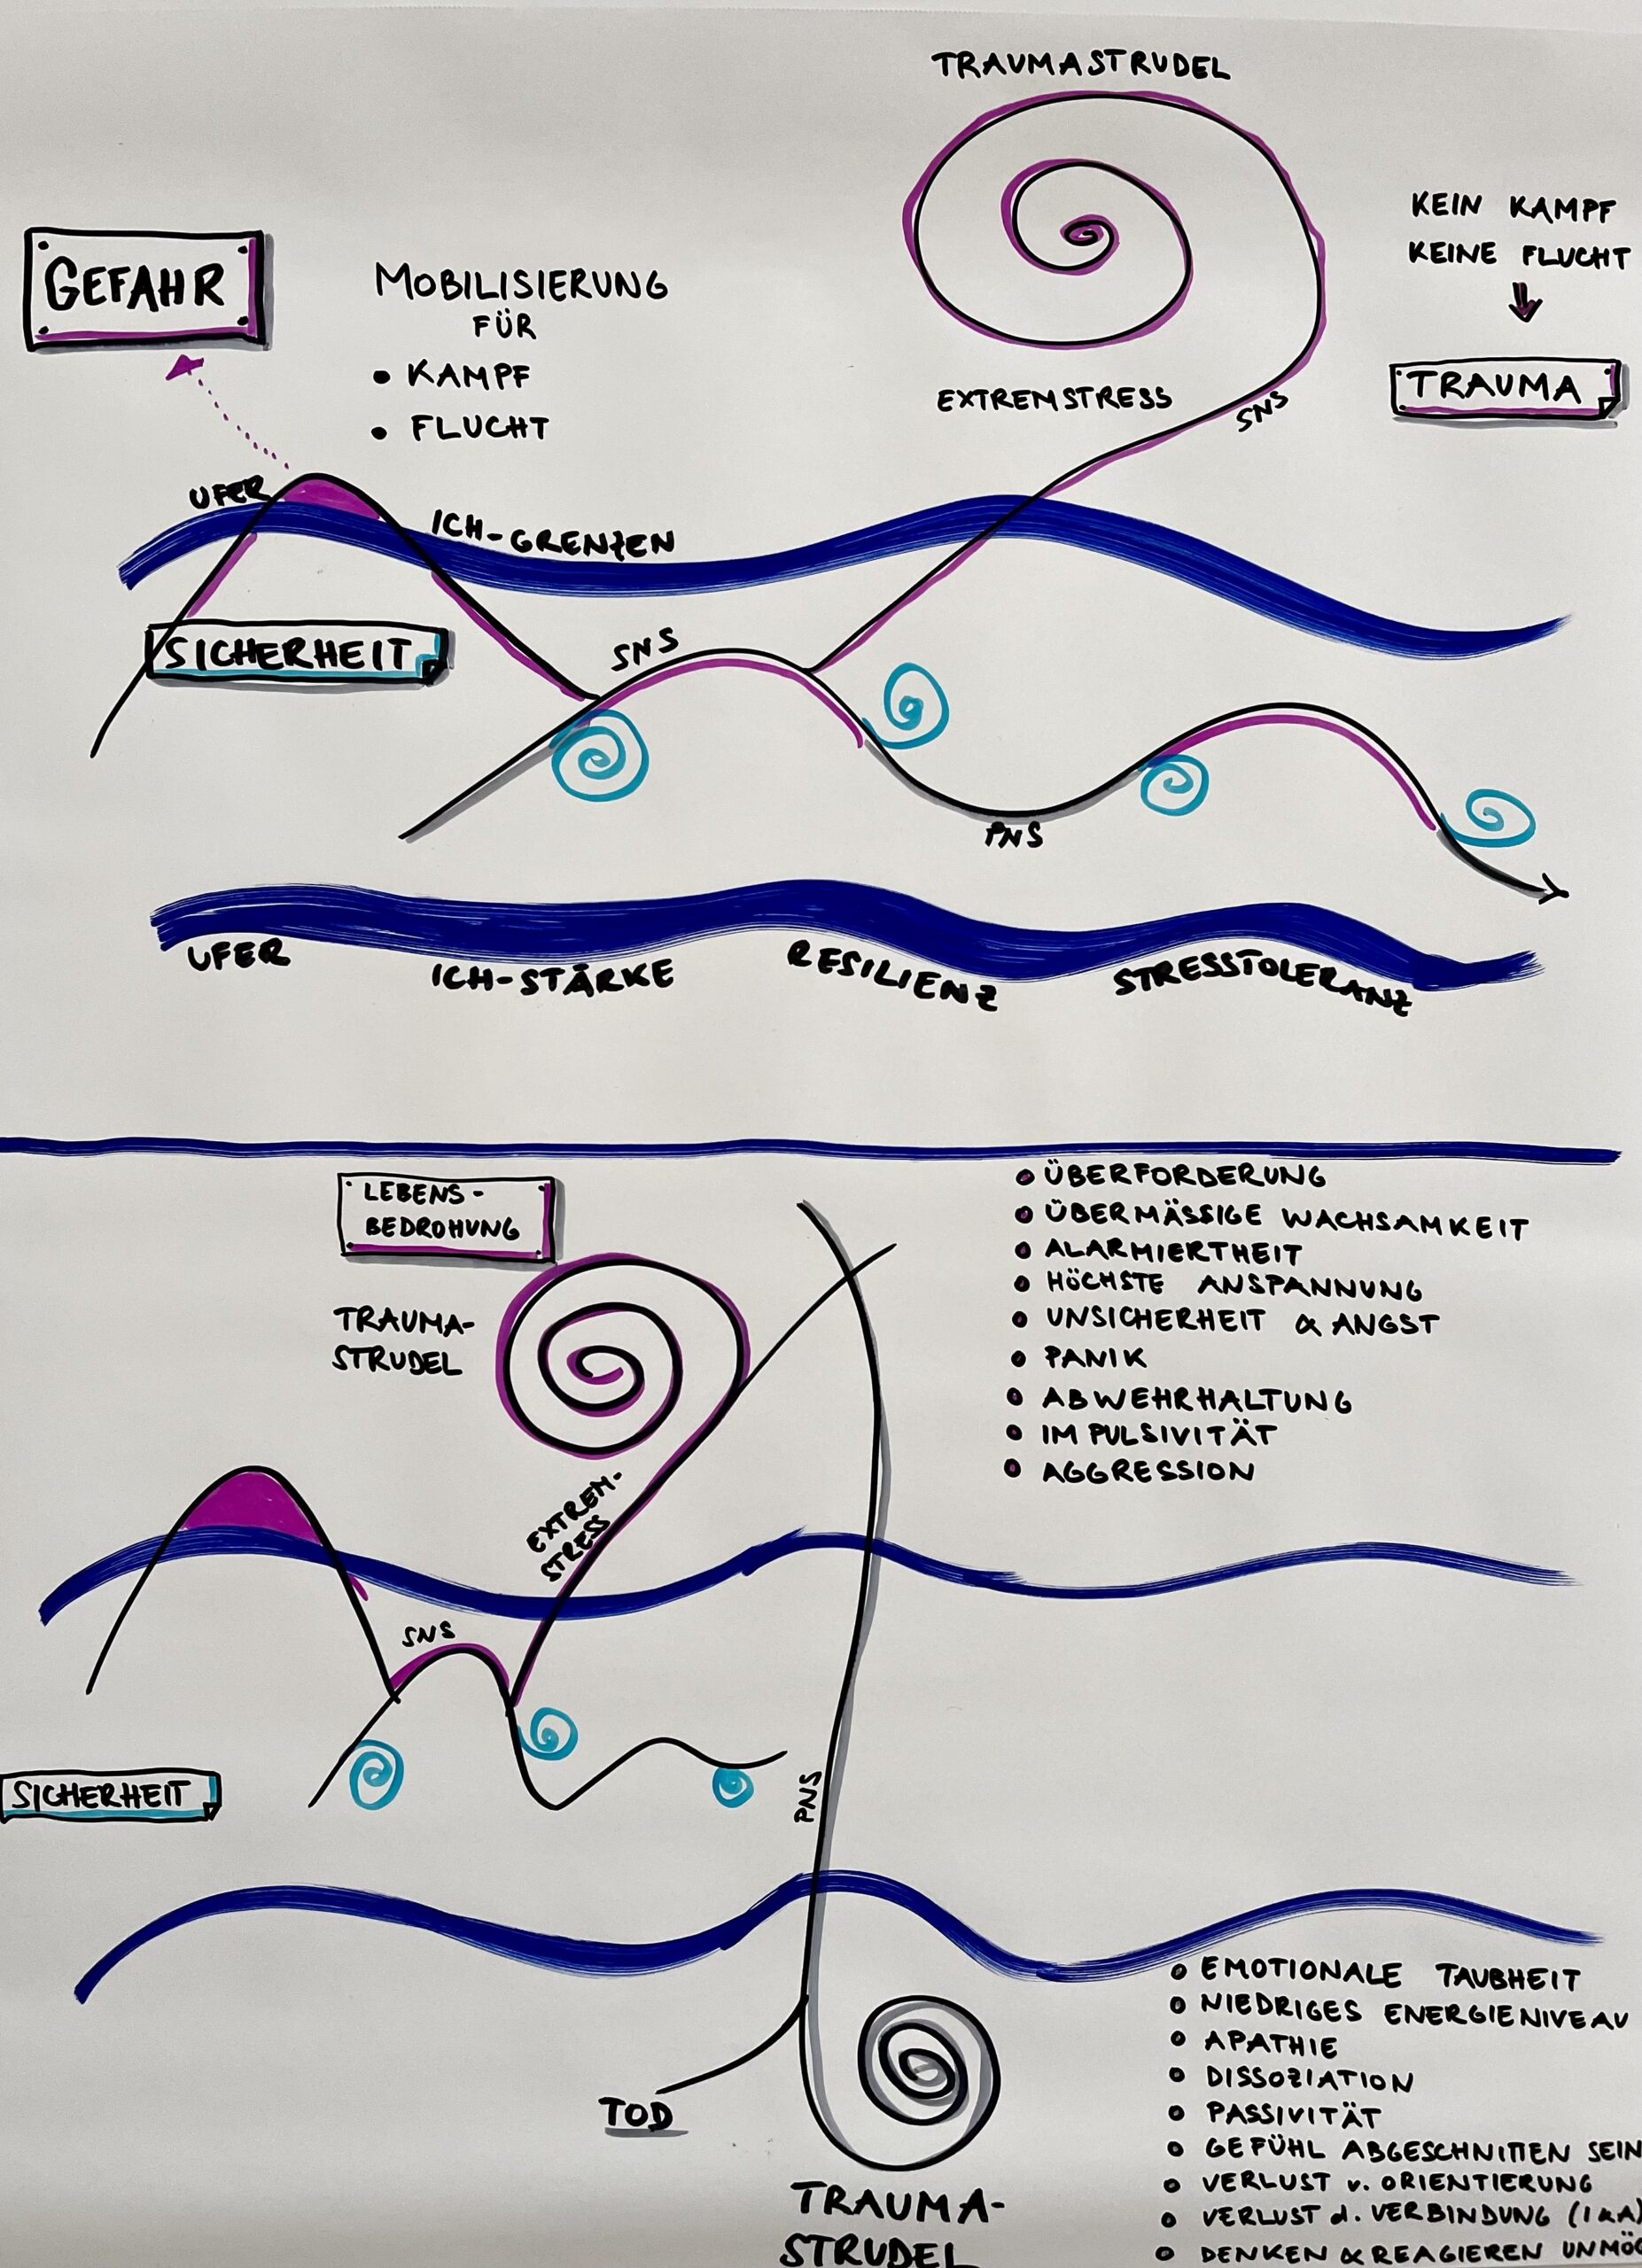 TRAUMASTRUDEL
KEIN KAMPF
KEINE FLUCHT
TRAUMA
GEFAHR
MOBILISIERUNG
FÜR
• KAMPF
• FLUCHT
EXTREMSTRESS
SNS
UFER
ICH-GRENZEN
SICHERHEIT
SNS
PNS
UFER
ICH-STÄRKE
RESILIENZ
STRESSTOLERANZ
LEBENS-
BEDROHUNG
TRAUMA-
STRUDEL
• ÜBERFORDERUNG
• ÜBERMÄSSIGE WACHSAMKEIT
• ALARMIERTHEIT
• HÖCHSTE ANSPANNUNG
• UNSICHERHEIT & ANGST
• PANIK
• ABWEHRHALTUNG
• IMPULSIVITÄT
• AGGRESSION
EXTREM-
STRESS
SNS
SICHERHEIT
PNS
TOD
TRAUMA-
STRUDEL
• EMOTIONALE TAUBHEIT
• NIEDRIGES ENERGIENIVEAU
• APATHIE
• DISSOZIATION
• PASSIVITÄT
• GEFÜHL ABGESCHNITTEN SEIN
• VERLUST v. ORIENTIERUNG
• VERLUST d. VERBINDUNG (I&A)
• DENKEN & REAGIEREN